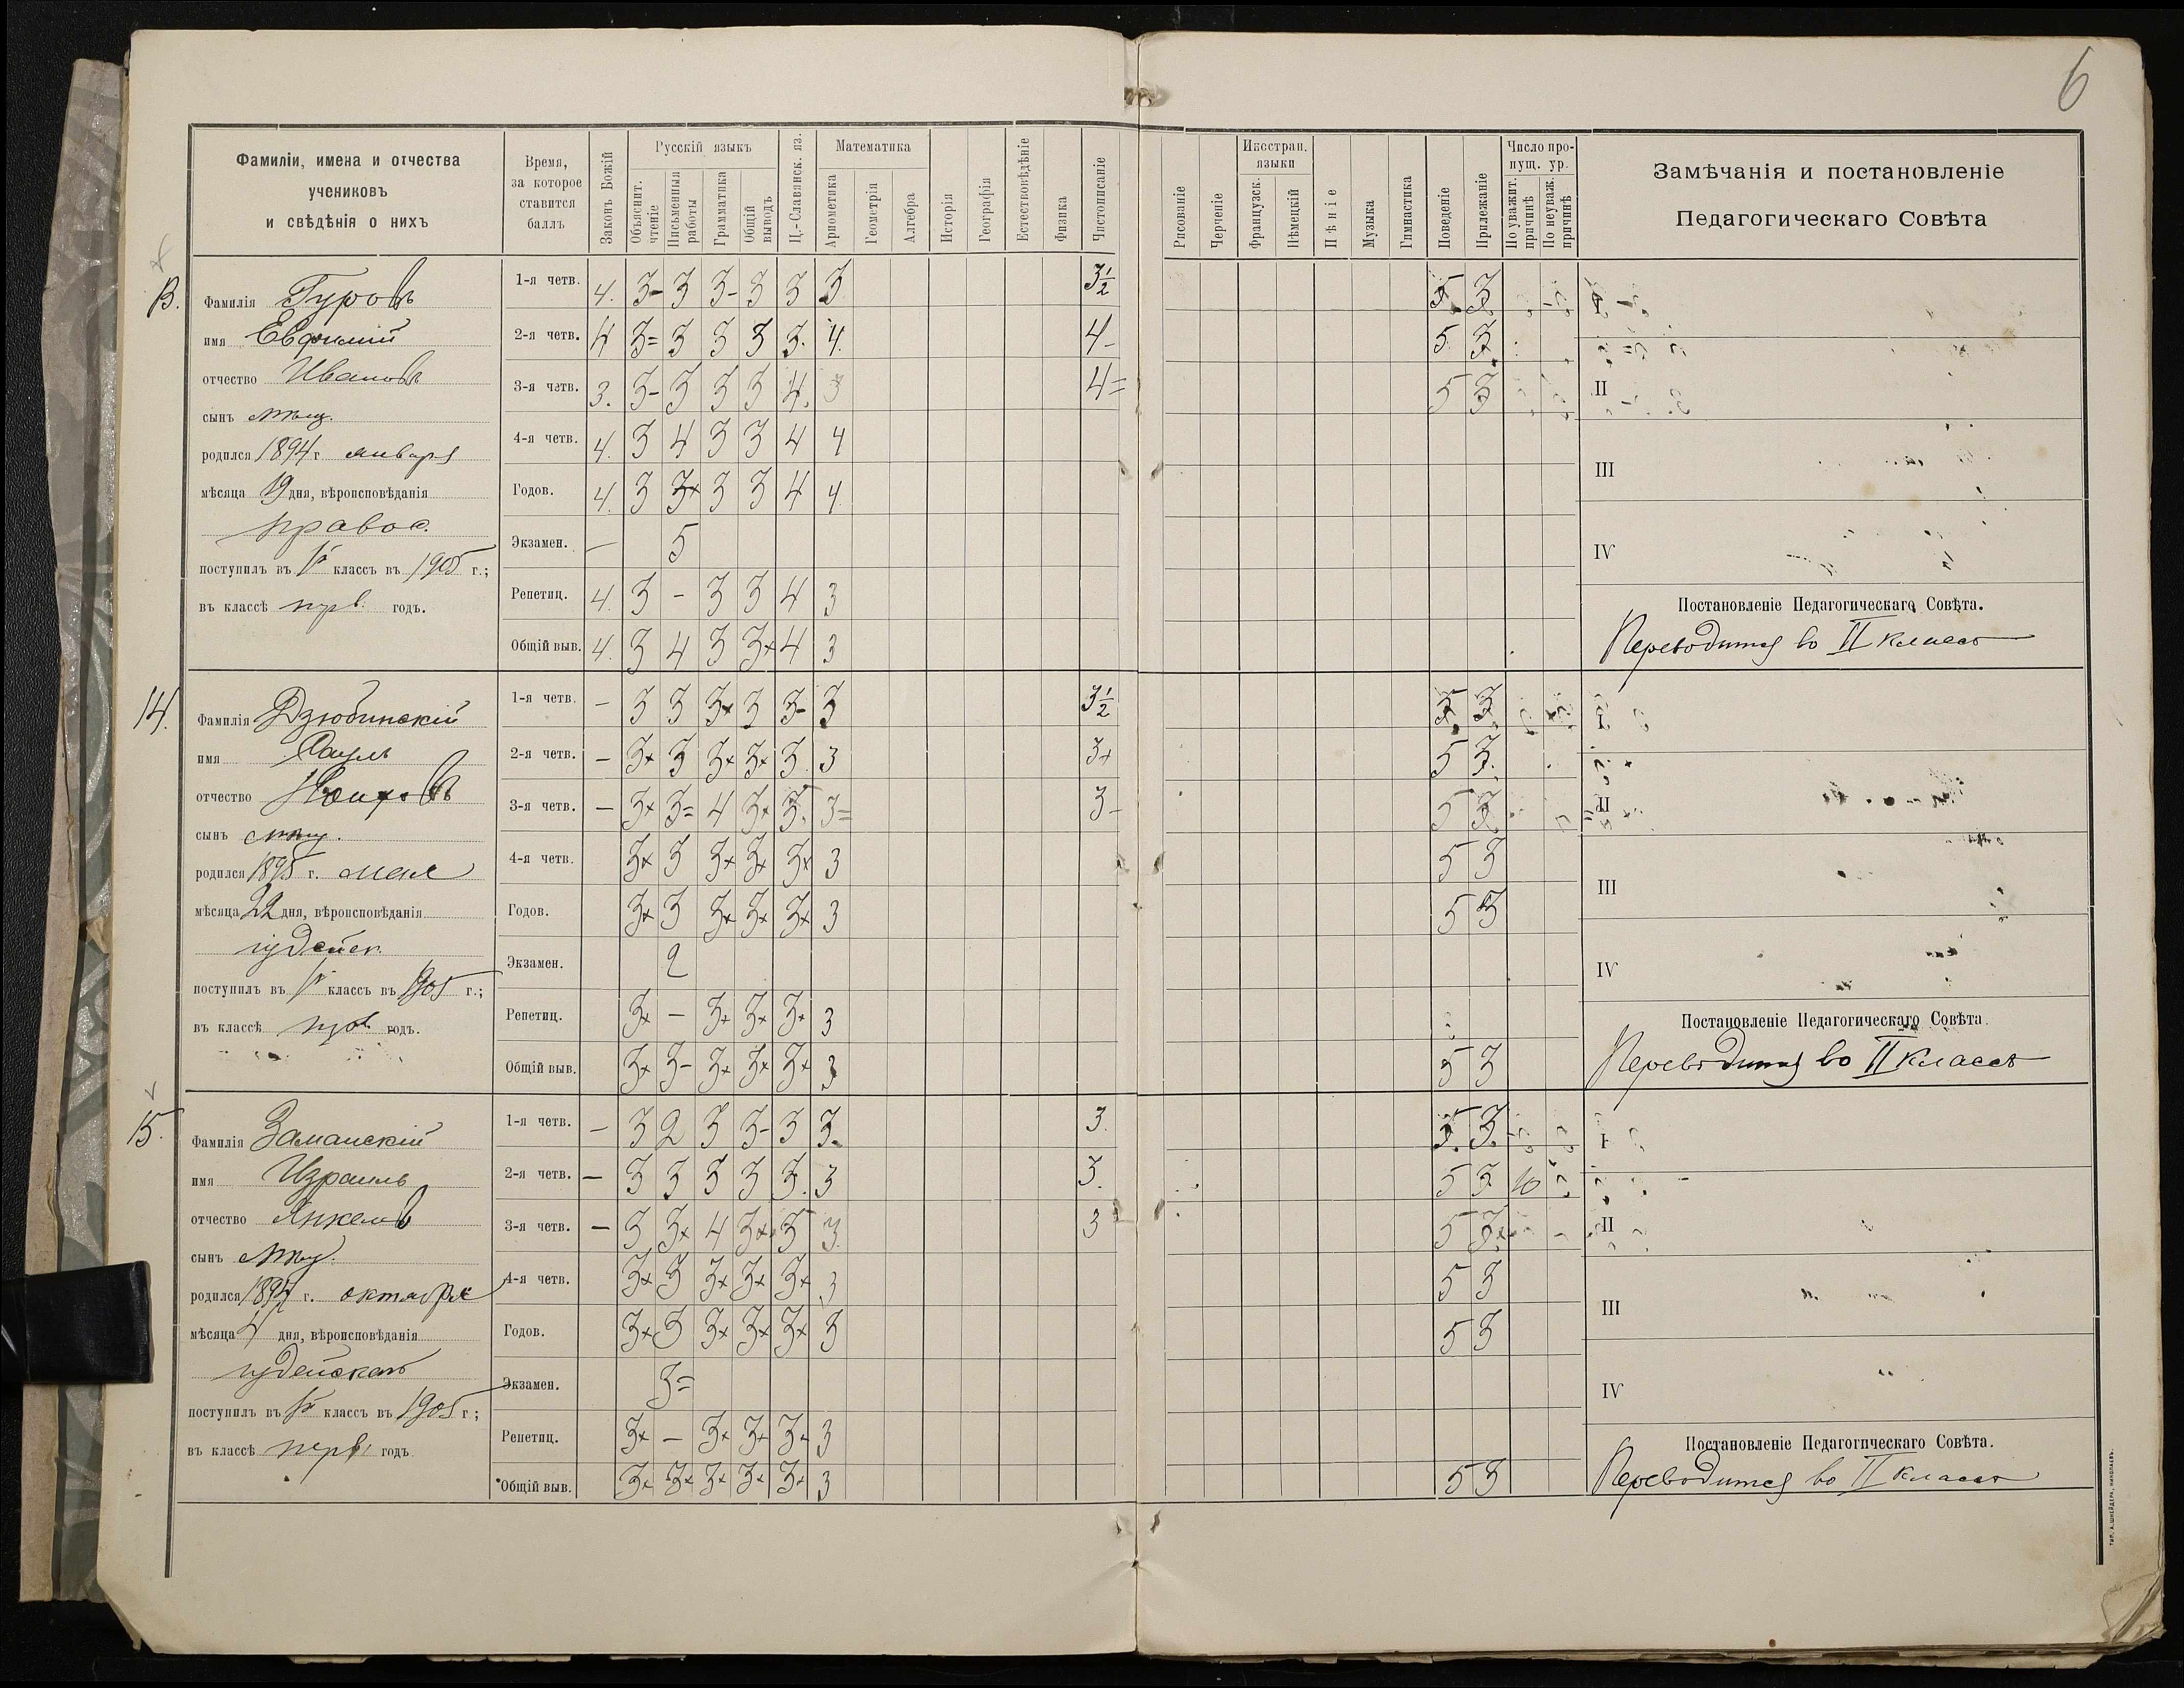 6
Фамиліи, имена и отчества
учениковъ
и свѣдѣнія о нихъ
Время,
за которое
ставится
баллъ
Законъ Божій
Русскій языкъ
Объяснит. чтеніе
Письменныя работы
Грамматика
Общій выводъ
Ц.-Славянск. яз.
Математика
Ариѳметика
Геометрія
Алгебра
Исторія
Географія
Естествовѣдѣніе
Физика
Чистописаніе
Рисованіе
Черченіе
Иностран. языки
Французск.
Нѣмецкій
Пѣніе
Музыка
Гимнастика
Поведеніе
Прилежаніе
Число пропущ. ур.
По уважит. причинѣ
По неуваж. причинѣ
Замѣчанія и постановленіе
Педагогическаго Совѣта
13.
Фамилія Гуровъ
имя Евфимій
отчество Ивановъ
сынъ мѣщ.
родился 1894 г. января
мѣсяца 19 дня, вѣроисповѣданія
правос.
поступилъ въ Iй классъ въ 1905 г.;
въ классѣ перв. годъ.
1-я четв. 4. 3- 3 3- 3 3 3 3½ 5 3
2-я четв. 4 3= 3 3 3 3. 4. 4- 5 3
3-я четв. 3. 3- 3 3 3 4. 3 4= 5 3
4-я четв. 4. 3 4 3 3 4 4
Годов. 4. 3 3+ 3 3 4 4
Экзамен. — 5
Репетиц. 4. 3 - 3 3 4 3
Общій выв. 4. 3 4 3 3+ 4 3
I
II
III
IV
Постановленіе Педагогическаго Совѣта.
Переводится во II классъ
14.
Фамилія Дзюбинскій
имя
отчество
сынъ мѣщ.
родился 1895 г. мая
мѣсяца 22 дня, вѣроисповѣданія
іудейск.
поступилъ въ Iй классъ въ 1905 г.;
въ классѣ перв. годъ.
1-я четв. — 3 3 3+ 3 3- 3 3½ 5 3
2-я четв. — 3+ 3 3+ 3+ 3 3 3+ 5 3.
3-я четв. — 3+ 3= 4 3+ 3. 3= 3- 5 3
4-я четв. 3+ 3 3+ 3+ 3+ 3 5 3
Годов. 3+ 3 3+ 3+ 3+ 3 5 3
Экзамен. 2
Репетиц. 3+ — 3+ 3+ 3+ 3
Общій выв. 3+ 3- 3+ 3+ 3+ 3 5 3
I
II
III
IV
Постановленіе Педагогическаго Совѣта.
Переводится во II классъ
15.
Фамилія Заманскій
имя Израиль
отчество Янкелевъ
сынъ мѣщ.
родился г. октября
мѣсяца 4 дня, вѣроисповѣданія
іудейскаго
поступилъ въ Iй классъ въ 1905 г.;
въ классѣ перв. годъ
1-я четв. — 3 2 3 3- 3 3. 3. 5. 3.
2-я четв. — 3 3 3 3 3. 3 3. 5 3 10
3-я четв. — 3 3+ 4 3+ 3 3. 3 5 3+
4-я четв. 3+ 3 3+ 3+ 3+ 3 5 3
Годов. 3+ 3 3+ 3+ 3+ 3 5 3
Экзамен. 3=
Репетиц. 3+ — 3+ 3+ 3+ 3
Общій выв. 3+ 3+ 3+ 3+ 3+ 3 5 3
I
II
III
IV
Постановленіе Педагогическаго Совѣта.
Переводится во II классъ
ТИП. А. ШНЕЙДЕРА, НИКОЛАЕВЪ.